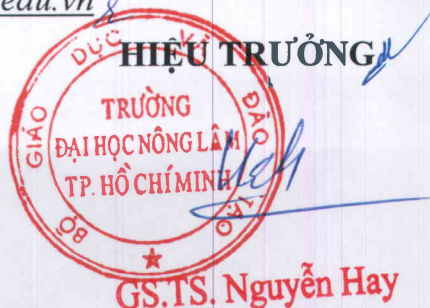 edu.vn
HIỆU TRƯỞNG
BỘ GIÁO DỤC VÀ ĐÀO TẠO
TRƯỜNG
ĐẠI HỌC NÔNG LÂM
TP. HỒ CHÍ MINH
GS.TS. Nguyễn Hay